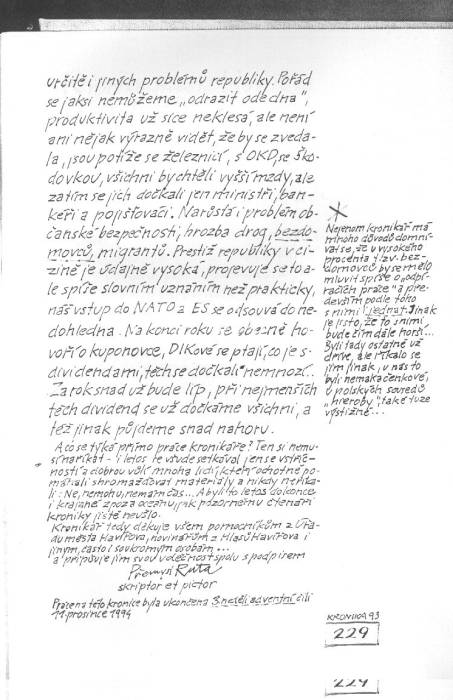 určitě i jiných problémů republiky. Pořád
se jaksi nemůžeme „odrazit ode dna",
produktivita už sice neklesá, ale není
ani nějak výrazně vidět, že by se zveda-
la, jsou potíže se železnicí, s OKD, se Ško-
dovkou, všichni by chtěli vyšší mzdy, ale
zatím se jich dočkali jen ministři, ban-
kéři a pojišťováci. Narůstá i problém ob-
čanské bezpečnosti, hrozba drog, bezdo-
movců, migrantů. Prestiž republiky v ci-
zině je údajně vysoká, projevuje se to a-
le spíše slovním uznáním než prakticky,
náš vstup do NATO a ES se odsouvá do ne-
dohledna. Na konci roku se obecně ho-
voří o kuponovce, DIKové se ptají, co je s
dividendami, těch se dočkali "nemnozí"..
Za rok snad už bude líp, při nejmenších
těch dividend se už dočkáme všichni, a
též jinak půjdeme snad nahoru.
A co se týká přímo práce kronikáře? Ten si nemu-
sí naříkat - i letos se všude setkával jen se vstříc-
ností a dobrou vůlí mnoha lidí, kteří ochotně po-
máhali shromažďovat materiály a nikdy neříka-
li: Ne, nemohu, nemám čas... A byli to letos dokonce
i krajané zpoza oceánu, jak pozornému čtenáři
kroniky jistě neušlo.
Kronikář tedy děkuje všem pomocníkům z Úřa-
du města Havířova, novinářům z Hlasů Havířova i
jiným, často i soukromým osobám...
a připisuje jim svou vděčnost spolu s podpisem
Přemysl Ruta
skriptor et pictor
Práce na této kronice byla ukončena 3. neděli adventní čili
11. prosince 1994
X
Nejenom kronikář má
mnoho důvodů domní-
vat se, že u vysokého
procenta tzv. bez-
domovců by se mělo
mluvit spíše o "odpí-
račích práce" a pře-
devším podle toho
s nimi i jednat. Jinak
je jisto, že to s nimi
bude čím dále horší...
Byli tady ostatně už
dříve, ale říkalo se
jim jinak, u nás to
byli nemakačenkové,
u polských sousedů
"nieroby", také tuze
výstižné...
KRONIKA 93
229
229